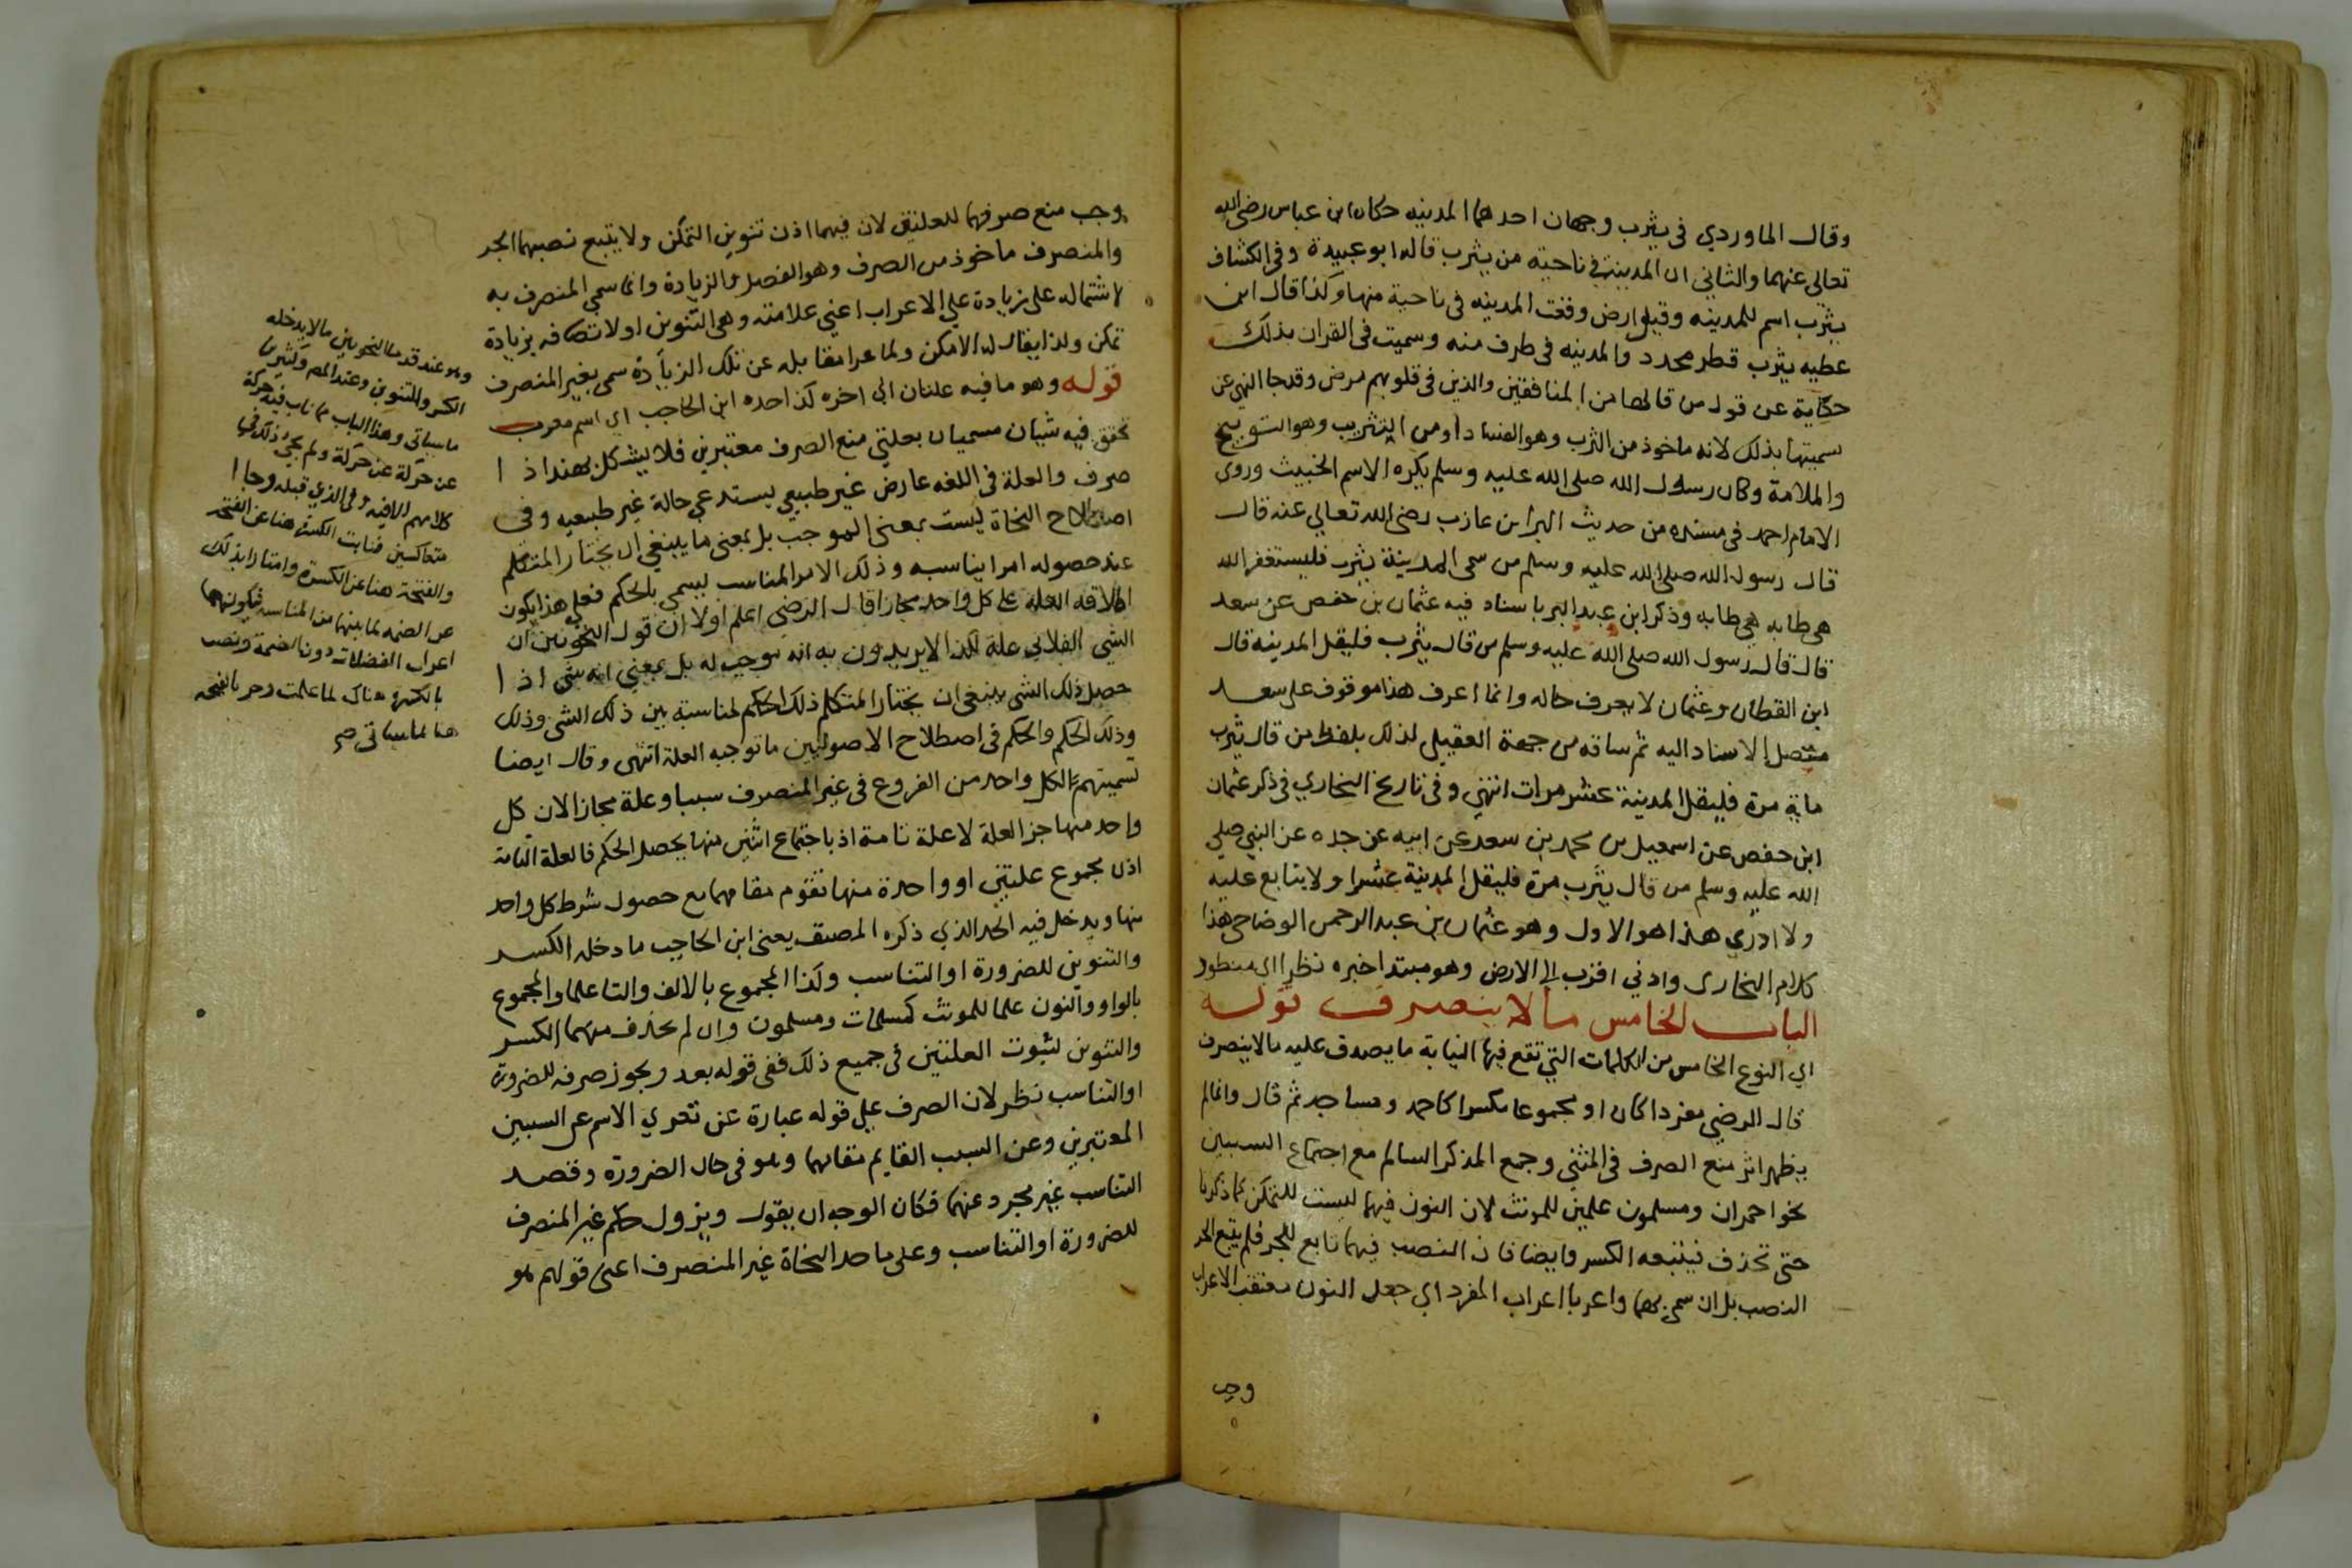 وقال الماوردي في يثرب وجهان احدهما المدينه حكاه ابن عباس رضي الله
تعالى عنهما والثاني ان المدينة في ناحية من يثرب قاله ابو عبيدة وفي الكشاف
يثرب اسم للمدينه وقيل ارض وقعت المدينه في ناحية منها وكذا قال ابن
عطيه يثرب قطر محدد والمدينه في طرف منه وسميت في القران بذلك
حكاية عن قول من قالها من المنافقين والذين في قلوبهم مرض وقد جا النهي عن
سميتها بذلك لانه ماخوذ من الثرب وهو الفساد او من التثريب وهو التوبيخ
والملامة وكان رسول الله صلى الله عليه وسلم يكره الاسم الخبيث وروى
الامام احمد في مسنده من حديث البرا بن عازب رضى الله تعالي عنه قال
قال رسول الله صلى الله عليه وسلم من سمى المدينة يثرب فليستغفر الله
هي طابه هي طابه وذكر ابن عبد البر باسناد فيه عثمان بن حفص عن سعد
قال قال رسول الله صلى الله عليه وسلم من قال يثرب فليقل المدينة قال
ابن القطان وعثمان لا يعرف حاله وانما اعرف هذا موقوف على سعد
متصل الاسناد اليه ثم ساقه من جهة العقيلي لذلك بلفظ من قال يثرب
ماية مرة فليقل المدينة عشر مرات انتهي وفي تاريخ البخاري في ذكر عثمان
ابن حفص عن اسمعيل بن محمد بن سعد عن ابيه عن جده عن النبي صلي
الله عليه وسلم من قال يثرب مرة فليقل المدينة عشرا ولا يتابع عليه
ولا ادري هذا هو الاول وهو عثمان بن عبد الرحمن الوضاحي هذا
كلام البخارى وادني اقرب الى الارض وهو مبتدا خبره نظر اى منظور
الباب الخامس ما لا ينصرف قوله
اي النوع الخامس من الكلمات التي تقع فيها النيابة ما يصدق عليه ما لا ينصرف
قال الرضي مفردا كان او مجموعا مكسرا كاحمد ومساجد ثم قال وانما لم
يظهر اثر منع الصرف في المثني وجمع المذكر السالم مع اجتماع السببين
نحو احمران ومسلمون علمين للمونث لان النون فيهما ليست للتمكن كما ذكرنا
حتى تحذف فيتبعه الكسر وايضا فان النصب فيهما تابع للجر فلم يتبع الجر
النصب بل ان سمى بهما واعربا اعراب المفرد اي جعل النون معتقب الاعراب
وجب
وجب منع صرفهما للعلتين لان فيهما اذن تنوين التمكن ولا يتبع نصبهما الجر
والمنصرف ماخوذ من الصرف وهو الفضل والزيادة وانما سمي المنصرف به
لاشتماله على زيادة علي الاعراب اعني علامته وهي التنوين او لاتصافه بزيادة
تمكن ولذا يقال له الامكن ولما عرا مقابله عن تلك الزيادة سمي بغير المنصرف
قوله وهو ما فيه علتان الى اخره كذا حده ابن الحاجب اي اسم معرب
تحقق فيه شيان مسميان بعلتي منع الصرف معتبرين فلا يشكل بهند اذا
صرف والعلة في اللغه عارض غير طبيعي يستدعي حالة غير طبيعيه وفي
اصطلاح النحاة ليست بمعنى الموجب بل بمعنى ما ينبغي ان يختار المتكلم
عند حصوله امرا يناسبه وذلك الامر المناسب يسمي بالحكم فعلي هذا يكون
اطلاق العلة على كل واحد مجازا قال الرضي اعلم اولا ان قول النحويين ان
الشي الفلاني علة لكذا لا يريدون به انه موجب له بل بمعني انه شي اذا
حصل ذلك الشي ينبغي ان يختار المتكلم ذلك الحكم لمناسبة بين ذلك الشي وذلك
وذلك الحكم والحكم في اصطلاح الاصوليين ما توجبه العلة انتهى وقال ايضا
تسميتهم لكل واحد من الفروع في غير المنصرف سببا وعلة مجاز لان كل
واحد منها جز العلة لا علة تامة اذ باجتماع اثنين منها يحصل الحكم فالعلة التامة
اذن مجموع علتين او واحدة منها تقوم مقامهما مع حصول شرط كل واحد
منها ويدخل فيه الحد الذي ذكره المصنف يعني ابن الحاجب ما دخله الكسر
والتنوين للضرورة او التناسب وكذا المجموع بالالف والتا علما والمجموع
بالواو والنون علما للمونث كمسلمات ومسلمون وان لم يحذف منهما الكسر
والتنوين لثبوت العلتين في جميع ذلك ففي قوله بعد ويجوز صرفه للضرورة
او التناسب نظر لان الصرف على قوله عبارة عن تعري الاسم عن السببين
المعتبرين وعن السبب القايم مقامهما وهو في حال الضرورة وقصد
التناسب غير مجرد عنهما فكان الوجه ان يقول ويزول حكم غير المنصرف
للضرورة او التناسب وعلى ما حد النحاة غير المنصرف اعنى قولهم هو
وهو عند قدما النحويين ما لا يدخله
الكسر والتنوين وعند المص وكثير ما
ما سياتي وهذا الباب مما ناب فيه حركة
عن حركة ولم يجئ ذلك في
كلامهم الا فيه وفي الذي قبله وجاا
متعاكسين فنابت الكسرة هنا عن الفتحة
والفتحة هنا عن الكسرة وامتازا بذلك
عن الضمه لما بينهما من المناسبه فيكونهما
اعراب الفضلات دون الضمة ونصب
بالكسرة هناك لما علمت وجر بالفتحه
هنا لما سياتي صح